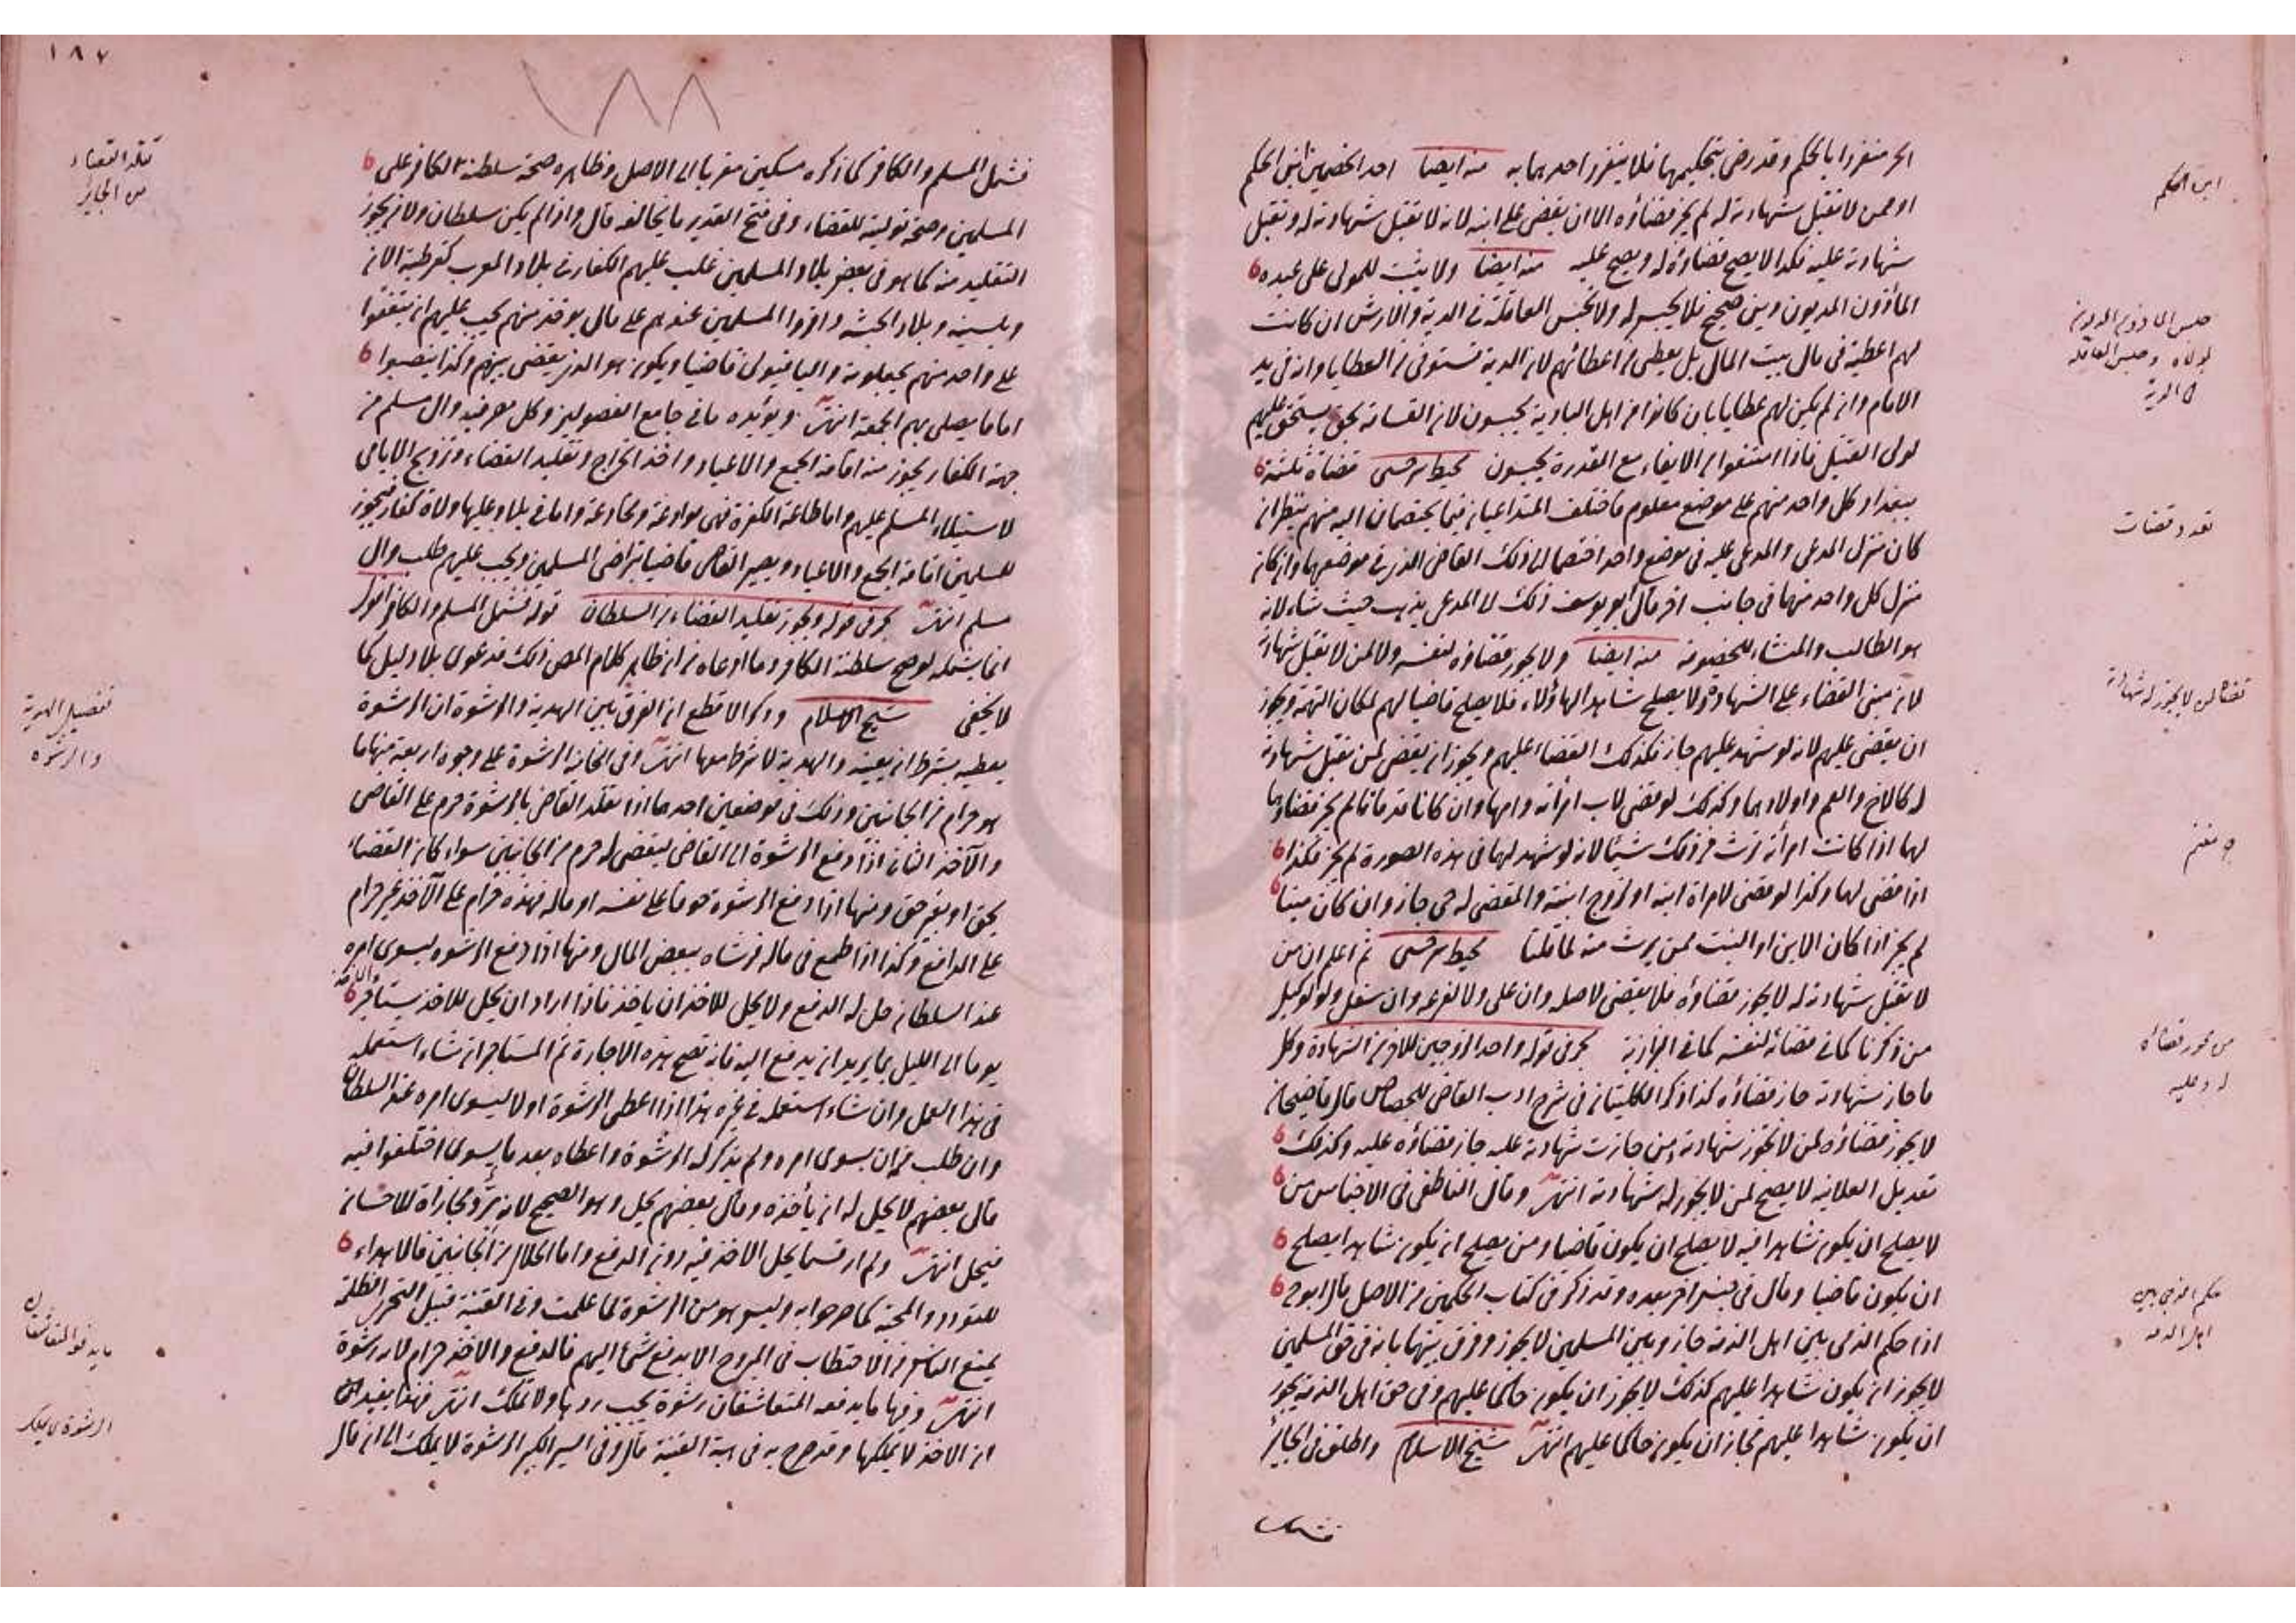 الحر منفردا بالحكم وقد رضى بتحكيمهما فلا ينفرد احدهما به منه ايضا احد الخصمين ابن الحكم
او ممن لا تقبل شهادته له لم يجز قضاؤه الا ان يقضى على ابنه لانه لا تقبل شهادته له وتقبل
شهادته عليه فكذا لا يصح قضاؤه له ويصح عليه منه ايضا ولا يثبت للمولى على عبده
المأذون المديون دين صحيح فلا يحبس له ولا تحبس العاقلة فى الدية والارش ان كانت
لهم اعطية فى مال بيت المال بل يعطى من اعطائهم لان الدية تستوفى من العطايا وانه فى يد
الامام وان لم يكن لهم عطايا بان كانوا من اهل البادية يحبسون لان القسامة بحق يستحق عليهم
لولى القتيل فاذا امتنعوا من الايفاء مع القدرة يحبسون محيط سرخسى قضاة ثلثة
ببغداد كل واحد منهم على موضع معلوم فاختلف المتداعيان فيما يختصمان اليه منهم ينظر ان
كان منزل المدعى والمدعى عليه فى موضع واحد اختصما الى ذلك القاضى الذى فى موضعهما وان كان
منزل كل واحد منهما فى جانب اخر قال ابو يوسف ذلك الى المدعى يذهب حيث شاء لانه
هو الطالب والمنشاء للخصومة منه ايضا ولا يجوز قضاؤه لنفسه ولا لمن لا تقبل شهادته
لان مبنى القضاء على الشهادة ولا يصلح شاهدا لهاؤلاء فلا يصلح قاضيا لهم لمكان التهمة ويجوز
ان يقضى عليهم لانه لو شهد عليهم جاز فكذلك القضاء عليهم ويجوز ان يقضى لمن تقبل شهادته
له كالاخ والعم واولادهما وكذلك لو قضى لاب امرأته وامها وان كانا قد ماتا لم يجز قضاؤه
لهما اذا كانت امرأته ترث من ذلك شيئا لانه لو شهد لهما فى هذه الصورة لم يجز فكذا
اذا قضى لهما وكذا لو قضى لامرأة ابنه او لزوج ابنته والمقضى له حى جاز وان كان ميتا
لم يجز اذا كان الابن او البنت ممن يرث منه لما قلنا محيط سرخسى ثم اعلم ان من
لا تقبل شهادته له لا يجوز قضاؤه فلا يقضى لاصله وان على ولا لفرعه وان سفل ولو لوكيل
من ذكرنا كما فى قضائه لنفسه كما فى البزازية بحر فى قوله واحد الزوجين للاخر من الشهادة وكل
ما جاز شهادته جاز قضاؤه كذا ذكر فى شرح ادب القاضى للخصاف قال قاضيخان
لا يجوز قضاؤه لمن لا تجوز شهادته ومن جازت شهادته عليه جاز قضاؤه عليه وكذلك
تعديل العلانية لا يصح لمن لا يجوز له شهادته انتهى وقال الناطفى فى الاجناس من
لا يصلح ان يكون شاهدا فيه لا يصلح ان يكون قاضيا ومن يصلح ان يكون شاهدا يصلح
ان يكون قاضيا وقال فى اخر بعده وقد ذكر فى كتاب الحكمين من الاصل قال ابو ح
اذا حكم الذمى بين اهل الذمة جاز وبين المسلمين لا يجوز وفرق بينهما بانه فى حق المسلمين
لا يجوز ان يكون شاهدا عليهم كذلك لا يجوز ان يكون حاكما عليهم وفى حق اهل الذمة يجوز
ان يكون شاهدا عليهم فجاز ان يكون حاكما عليهم انتهى شيخ الاسلام واطلق فى الجائر
فشمل
ابن الحكم
حبس المأذون المديون
لمولاه وحبس العاقلة
فى الدية
تعدد قضات
قضا لمن لا يجوز له شهادته
من يجوز قضاؤه
له وعليه
حكم الذمى بين
اهل الذمة
١٨٧
١٨٨
فشمل المسلم والكافر كما ذكره مسكين معزيا الى الاصل وظاهره صحة سلطنة الكافر على
المسلمين وصحة توليته للقضاء وفى فتح القدير ما يخالفه قال واذا لم يكن سلطان ولا من يجوز
التقليد منه كما هو فى بعض بلاد المسلمين غلب عليهم الكفار فى بلاد المغرب كقرطبة الان
وبلسنية وبلاد الحبشة واقروا المسلمين عندهم على مال يؤخذ منهم يجب عليهم ان يتفقوا
على واحد منهم يجعلونه واليا فيولى قاضيا ويكون هو الذى يقضى بينهم وكذا ينصبوا
اماما يصلى بهم الجمعة انتهى ويؤيده ما فى جامع الفصولين وكل مصر فيه وال مسلم من
جهة الكفار يجوز منه اقامة الجمع والاعياد واخذ الخراج وتقليد القضاء وتزويج الايامى
لاستيلاء المسلم عليهم واما طاعة الكفرة فهى موادعة ومخادعة واما فى بلاد عليها ولاة كفار فيجوز
للمسلمين اقامة الجمع والاعياد ويصير القاضى قاضيا بتراضى المسلمين ويجب عليهم طلب وال
مسلم انتهى بحر فى قوله ويجوز تقليد القضاء من السلطان قوله فشمل المسلم والكافر اقول
انما يشمله لو صح سلطنة الكافر وما ادعاه من ان ظاهر كلام المص ذلك فدعوى بلا دليل كما
لا يخفى شيخ الاسلام وذكر الاقطع ان الفرق بين الهدية والرشوة ان الرشوة
يعطيه بشرط ان يعينه والهدية لا شرط معها انتهى وفى الخانية الرشوة على وجوه اربعة منها ما
هو حرام من الجانبين وذلك فى موضعين احدهما اذا تقلد القاضى بالرشوة حرم على القاضى
والآخذ الثانى اذا دفع الرشوة الى القاضى ليقضى له حرم من الجانبين سواء كان القضاء
بحق او بغير حق ومنها اذا دفع الرشوة خوفا على نفسه او ماله فهذه حرام على الآخذ غير حرام
على الدافع وكذا اذا طمع فى ماله فرشاه ببعض المال ومنها اذا دفع الرشوة ليسوى امره
عند السلطان حل له الدفع ولا يحل للاخذ ان ياخذ فاذا اراد ان يحل للاخذ يستأجره
يوما الى الليل بما يريد ان يدفع اليه فانه تصح هذه الاجارة ثم المستأجر ان شاء استعمله
فى هذا العمل وان شاء استعمله فى غيره هذا اذا اعطى الرشوة اولا ليسوى امره عند السلطان
وان طلب منه ان يسوى امره ولم يذكر له الرشوة واعطاه بعد ما يسوى اختلفوا فيه
قال بعضهم لا يحل له ان يأخذه وقال بعضهم يحل وهو الصحيح لانه بر ومجازاة للاحسان
فيحل انتهى ولم ار قسما يحل الاخذ فيه دون الدفع واما الحلال من الجانبين فالاهداء
للتودد والمحبة كما صرحوا به وليس هو من الرشوة لما علمت وفى القنية قبيل التحرى الظلمة
يمنع الناس من الاحتطاب فى المروج الا بدفع شئ اليهم فالدفع والاخذ حرام لانه رشوة
انتهى وفيها ما يدفعه المتعاشقان رشوة يجب ردها ولا تملك انتهى فهذا يفيد
ان الاخذ لا يملكها وقد صرح به فى هبة القنية قال وفى السير الكبير الرشوة لا يملك الى ان قال
تقلد القضاء
من الجائر
تفصيل الهدية
والرشوة
ما يدفع المتعاشقان
الرشوة لا يملك